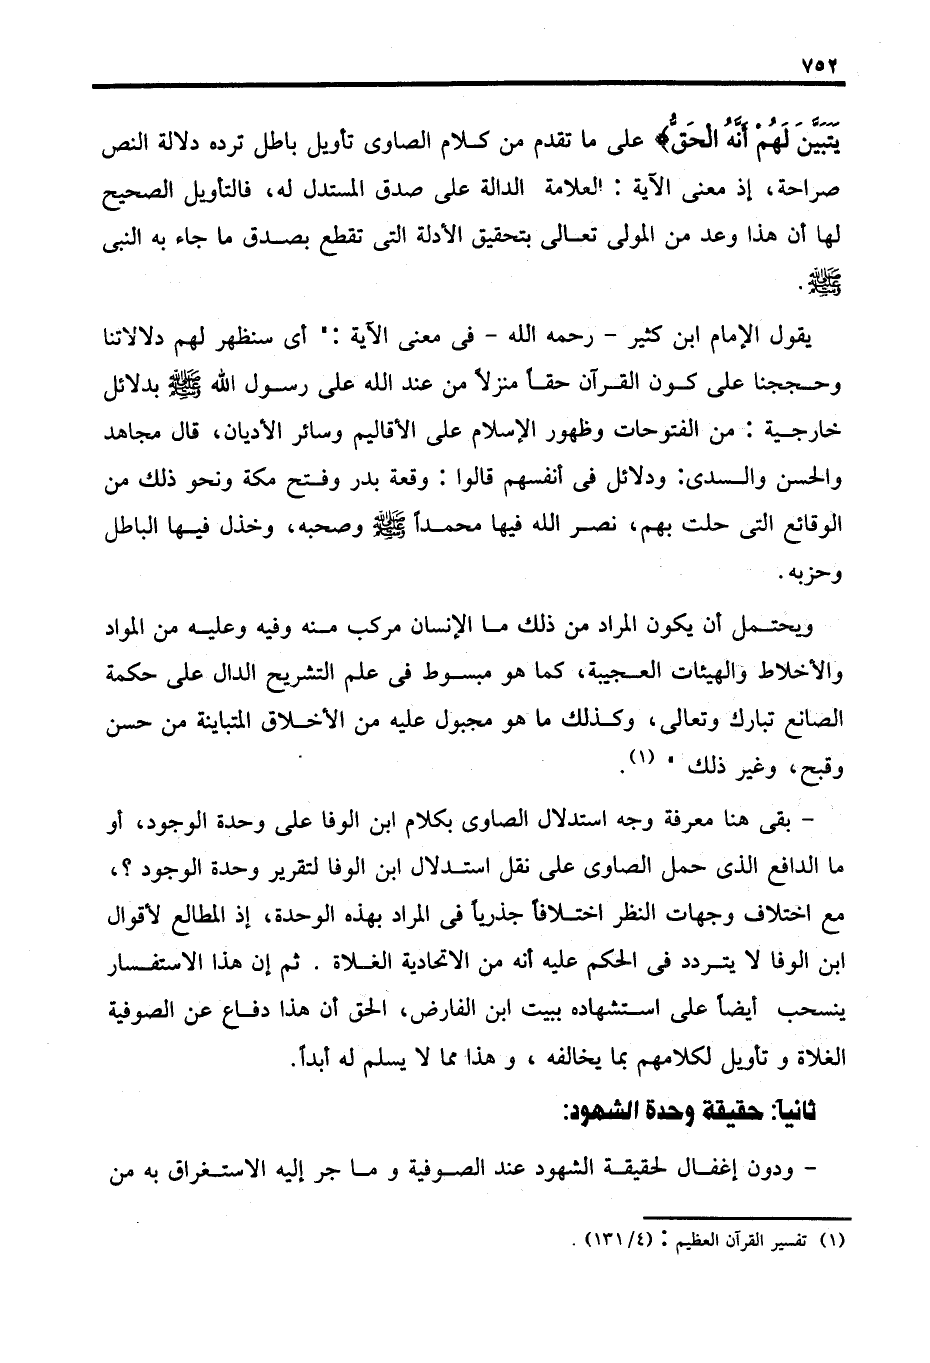 ٧٥٢
يَتَبَيَّنَ لَهُمْ أَنَّهُ الْحَقُّ﴾ على ما تقدم من كلام الصاوى تأويل باطل ترده دلالة النص
صراحة، إذ معنى الآية : العلامة الدالة على صدق المستدل له، فالتأويل الصحيح
لها أن هذا وعد من المولى تعالى بتحقيق الأدلة التى تقطع بصدق ما جاء به النبى
ﷺ .
يقول الإمام ابن كثير – رحمه الله – فى معنى الآية : " أى سنظهر لهم دلالاتنا
وحججنا على كون القرآن حقاً منزلاً من عند الله على رسول الله ﷺ بدلائل
خارجية : من الفتوحات وظهور الإسلام على الأقاليم وسائر الأديان، قال مجاهد
والحسن والسدى: ودلائل فى أنفسهم قالوا : وقعة بدر وفتح مكة ونحو ذلك من
الوقائع التى حلت بهم، نصر الله فيها محمداً ﷺ وصحبه، وخذل فيها الباطل
وحزبه .
ويحتمل أن يكون المراد من ذلك ما الإنسان مركب منه وفيه وعليه من المواد
والأخلاط والهيئات العجيبة، كما هو مبسوط فى علم التشريح الدال على حكمة
الصانع تبارك وتعالى، وكذلك ما هو مجبول عليه من الأخلاق المتباينة من حسن
وقبح، وغير ذلك " (١).
– بقى هنا معرفة وجه استدلال الصاوى بكلام ابن الوفا على وحدة الوجود، أو
ما الدافع الذى حمل الصاوى على نقل استدلال ابن الوفا لتقرير وحدة الوجود ؟،
مع اختلاف وجهات النظر اختلافاً جذرياً فى المراد بهذه الوحدة، إذ المطالع لأقوال
ابن الوفا لا يتردد فى الحكم عليه أنه من الاتحادية الغلاة . ثم إن هذا الاستفسار
ينسحب أيضاً على استشهاده ببيت ابن الفارض، الحق أن هذا دفاع عن الصوفية
الغلاة و تأويل لكلامهم بما يخالفه ، و هذا مما لا يسلم له أبداً.
ثانياً: حقيقة وحدة الشهود:
– ودون إغفال لحقيقة الشهود عند الصوفية و ما جر إليه الاستغراق به من
(١) تفسير القرآن العظيم : (٤/ ١٣١) .